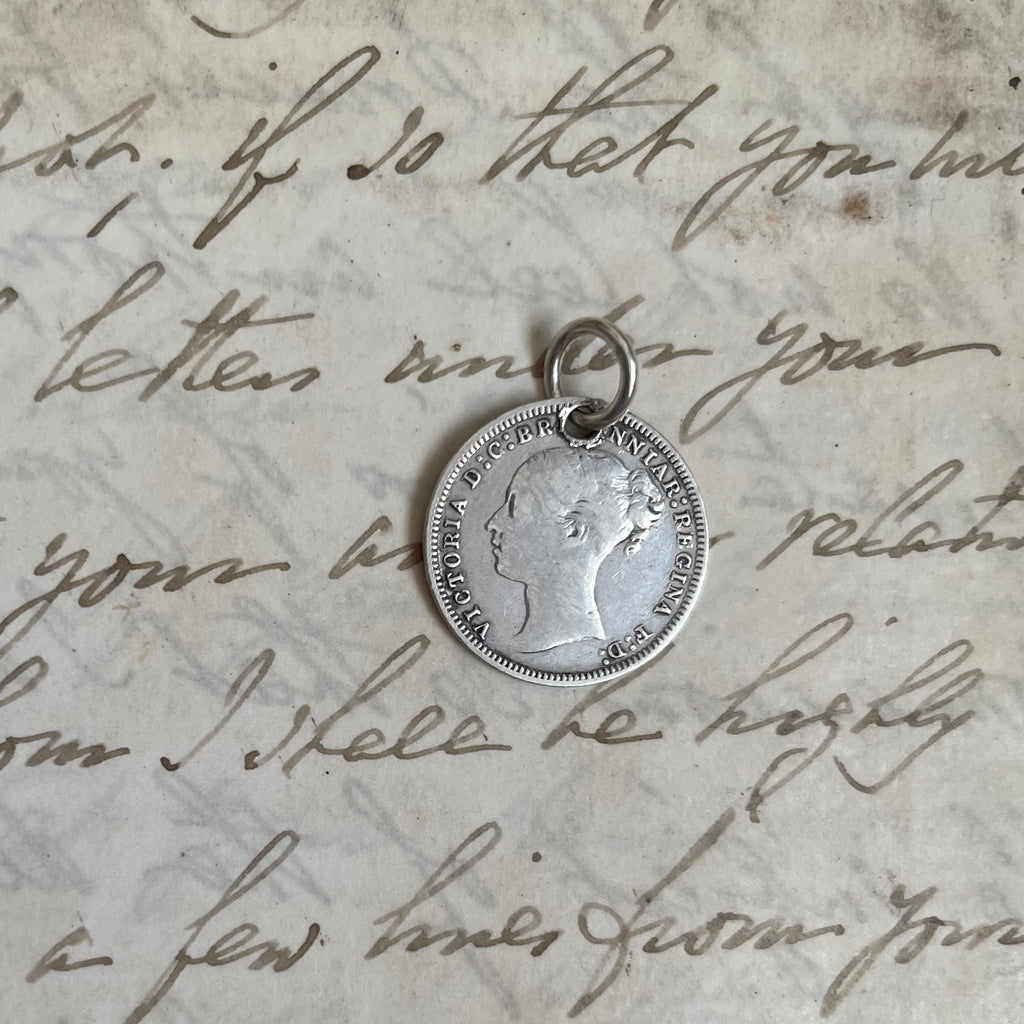 if so that you
letter under your
your relatn
I shall be highly
a few lines from your
VICTORIA D:G:BR NNIAR:REGINA F:D: